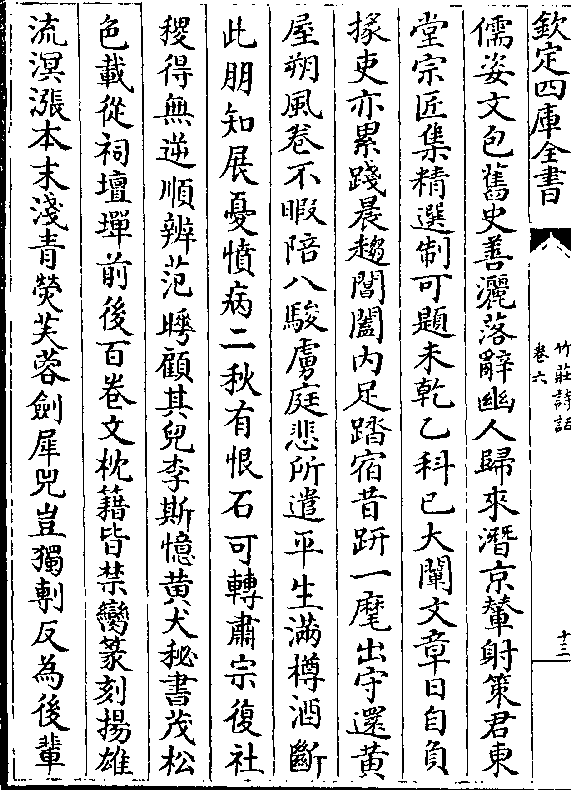 欽定四庫全書
竹莊詩話
卷六
十三
儒姿文包舊史善灑落辭幽人歸來潛京輦射策君東
堂宗匠集精選制可題未乾乙科已大闡文章日自負
掾吏亦累踐晨趨閶闔内足踏宿昔趼一麾出守還黄
屋朔風卷不暇陪八駿虜庭悲所遣平生滿樽酒斷
此朋知展憂憤病二秋有恨石可轉肅宗復社
稷得無逆順辨范曄顧其兒李斯憶黄犬秘書茂松
色載從祠壇墠前後百卷文枕藉皆禁臠篆刻揚雄
流溟漲本末淺青熒芙蓉劍犀兕豈獨剸反為後輩